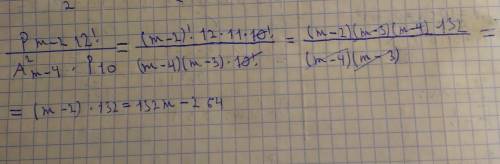 2
P m-2 12! / A²m-4 · P10 = (m-2)! · 12 · 11 · 10! / (m-4)(m-3) · 10! = (m-2)(m-3)(m-4) · 132 / (m-4)(m-3) =
= (m-2) · 132 = 132m - 264